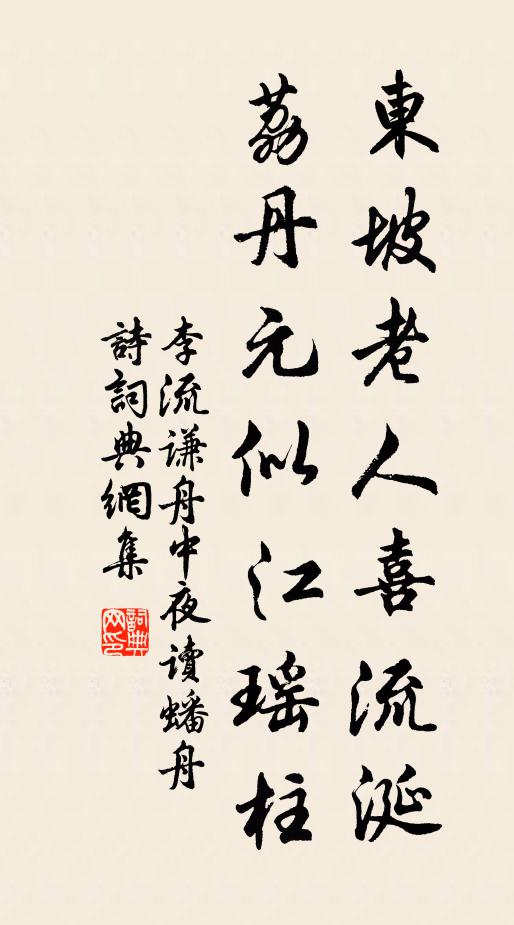 東坡老人喜流涎
荔丹元似江瑶柱
李流谦舟中夜讀蟠舟
詩詞典網集
詞典網印